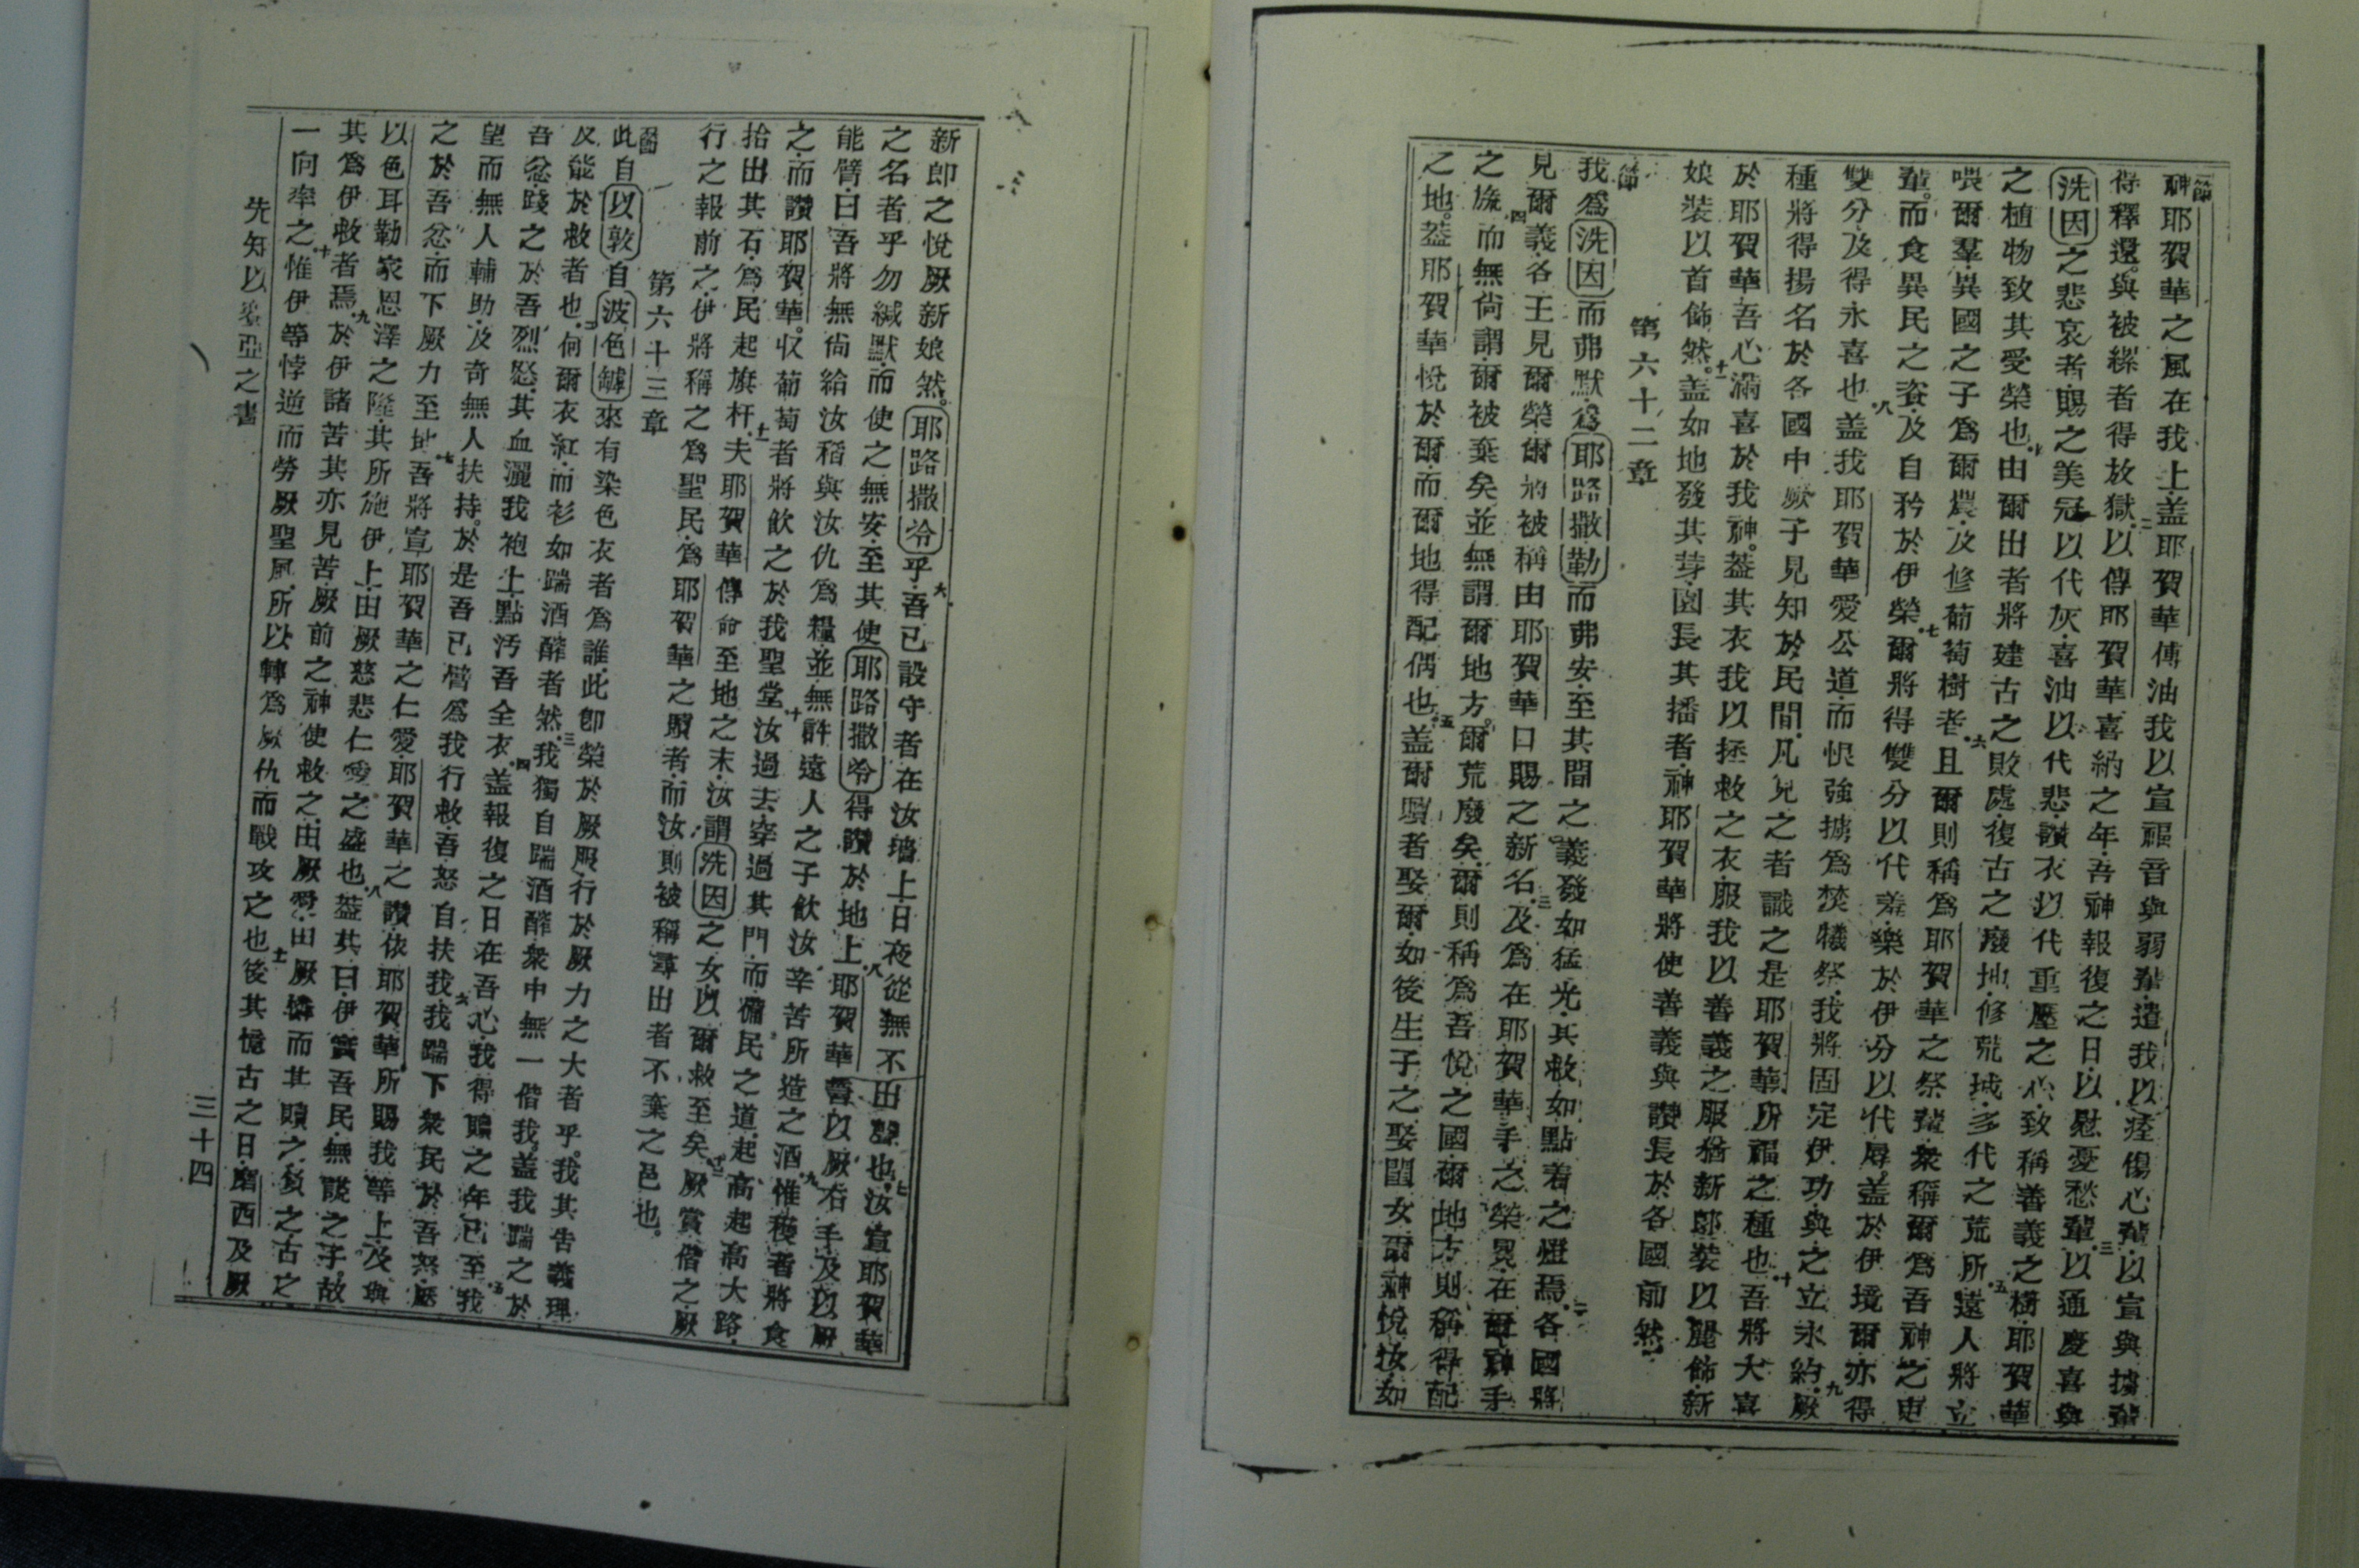 神耶賀華之風在我上盖耶賀華傅油我以宣福音與弱輩遣我以痊傷心輩以宣與擄輩
得釋還與被縲者得放獄二以傳耶賀華喜納之年吾神報復之日以慰憂愁輩三以通慶喜與
洗因之悲哀者賜之美冠以代灰喜油以代悲讚衣以代重壓之心致稱善義之樹耶賀華
之植物致其愛榮也由爾出者將建古之敗處復古之廢地修荒城多代之荒所五遠人將立
喂爾羣異國之子爲爾農及修葡萄樹者六且爾則稱爲耶賀華之祭輩衆稱爾爲吾神之吏
輩而食異民之資及自矜於伊榮七爾將得雙分以代羞樂於伊分以代辱盖於伊境爾亦得
雙分及得永喜也八盖我耶賀華愛公道而恨強擄爲焚犧祭我將固定伊功與之立永約九厥
種將得揚名於各國中厥子見知於民間凡見之者識之是耶賀華所福之種也十吾將大喜
於耶賀華吾心滿喜於我神盖其衣我以拯救之衣服我以善義之服猶新郎裝以麗飾新
娘裝以首飾然十一盖如地發其芽園長其播者神耶賀華將使善義與讚長於各國前然
第六十二章
節
我爲洗因而弗默爲耶路撒勒而弗安至其間之義發如猛光其救如點着之燈焉二各國將
見爾義各王見爾榮爾將被稱由耶賀華口賜之新名三及爲在耶賀華手之榮冕在爾神手
之旒四而無尙謂爾被棄矣並無謂爾地方爾荒廢矣爾則稱爲吾悅之國爾地方則稱得配
之地盖耶賀華悅於爾而爾地得配偶也五盖爾贖者娶爾如後生子之娶閨女爾神悅汝如
新郎之悅厥新娘然耶路撒冷乎六吾已設守者在汝墻上日夜從無不出聲也七汝宣耶賀華
之名者乎勿緘默而使之無安至其使耶路撒冷得讚於地上八耶賀華誓以厥右手及以厥
能臂曰吾將無尙給汝稻與汝仇爲糧並無許遠人之子飲汝辛苦所造之酒九惟穫者將食
之而讚耶賀華收葡萄者將飲之於我聖堂十汝過去穿過其門而備民之道起高起高大路
拾出其石爲民起旗杆十一夫耶賀華傳命至地之末汝謂洗因之女以爾救至矣厥賞偕之厥
行之報前之十二伊將稱之爲聖民爲耶賀華之贖者而汝則被稱尋出者不棄之邑也
第六十三章
節
此自以敦自波色罅來有染色衣者爲誰此卽榮於厥服行於厥力之大者乎我其告義理
及能於救者也二何爾衣紅而衫如踹酒醡者然三我獨自踹酒醡衆中無一偕我盖我踹之於
吾忿踐之於吾烈怒其血灑我袍上點汚吾全衣四盖報復之日在吾心我得贖之年已至五我
望而無人輔助及奇無人扶持於是吾已臂爲我行救吾怒自扶我六我踹下衆民於吾怒醉
之於吾忿而下厥力至地七吾將宣耶賀華之仁愛耶賀華之讚依耶賀華所賜我等上及與
以色耳勒家恩澤之隆其所施伊上由厥慈悲仁愛之盛也八盖其曰伊實吾民無謊之子故
其爲伊救者焉九於伊諸苦其亦見苦厥前之神使救之由厥愛由厥憐而其贖之負之古之
一向牽之十惟伊等悖逆而勞厥聖風所以轉爲厥仇而戰攻之也十一後其憶古之日磨西及厥
先知以賽亞之書
三十四